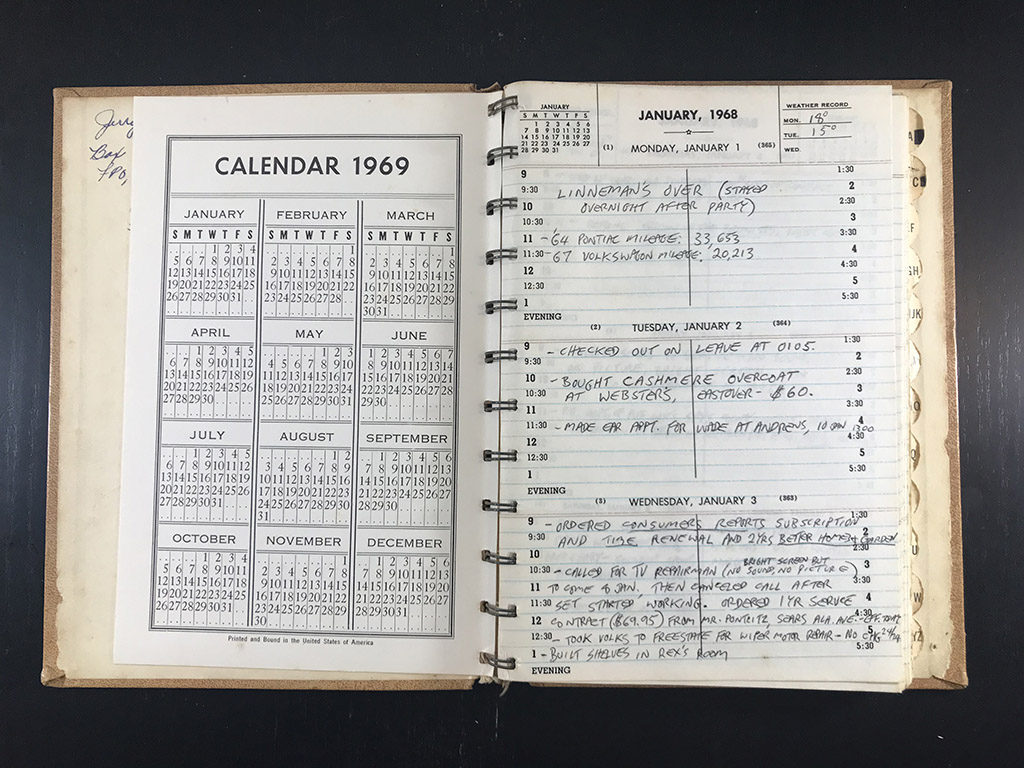 Jerry
Box
FPO,
CALENDAR 1969
JANUARY
S M T W T F S
1 2 3 4
5 6 7 8 9 10 11
12 13 14 15 16 17 18
19 20 21 22 23 24 25
26 27 28 29 30 31
FEBRUARY
S M T W T F S
1
2 3 4 5 6 7 8
9 10 11 12 13 14 15
16 17 18 19 20 21 22
23 24 25 26 27 28
MARCH
S M T W T F S
1
2 3 4 5 6 7 8
9 10 11 12 13 14 15
16 17 18 19 20 21 22
23 24 25 26 27 28 29
30 31
APRIL
1 2 3 4 5
6 7 8 9 10 11 12
13 14 15 16 17 18 19
20 21 22 23 24 25 26
27 28 29 30
MAY
1 2 3
4 5 6 7 8 9 10
11 12 13 14 15 16 17
18 19 20 21 22 23 24
25 26 27 28 29 30 31
JUNE
1 2 3 4 5 6 7
8 9 10 11 12 13 14
15 16 17 18 19 20 21
22 23 24 25 26 27 28
29 30
JULY
1 2 3 4 5
6 7 8 9 10 11 12
13 14 15 16 17 18 19
20 21 22 23 24 25 26
27 28 29 30 31
AUGUST
1 2
3 4 5 6 7 8 9
10 11 12 13 14 15 16
17 18 19 20 21 22 23
24 25 26 27 28 29 30
31
SEPTEMBER
1 2 3 4 5 6
7 8 9 10 11 12 13
14 15 16 17 18 19 20
21 22 23 24 25 26 27
28 29 30
OCTOBER
1 2 3 4
5 6 7 8 9 10 11
12 13 14 15 16 17 18
19 20 21 22 23 24 25
26 27 28 29 30 31
NOVEMBER
1
2 3 4 5 6 7 8
9 10 11 12 13 14 15
16 17 18 19 20 21 22
23 24 25 26 27 28 29
30
DECEMBER
1 2 3 4 5 6
7 8 9 10 11 12 13
14 15 16 17 18 19 20
21 22 23 24 25 26 27
28 29 30 31
Printed and Bound in the United States of America
JANUARY
S M T W T F S
1 2 3 4 5 6
7 8 9 10 11 12 13
14 15 16 17 18 19 20
21 22 23 24 25 26 27
28 29 30 31
JANUARY, 1968
WEATHER RECORD
MON. 18°
TUE. 15°
WED.
(1) MONDAY, JANUARY 1 (365)
9 1:30
9:30 LINNEMAN'S OVER (STAYED 2
10 OVERNIGHT AFTER PARTY) 2:30
10:30 3
11 - '64 PONTIAC MILEAGE: 33,653 3:30
11:30 - 67 VOLKSWAGON MILEAGE: 20,213 4
12 4:30
12:30 5
1 5:30
EVENING
(2) TUESDAY, JANUARY 2 (364)
9 - CHECKED OUT ON LEAVE AT 0105. 1:30
9:30 2
10 - BOUGHT CASHMERE OVERCOAT 2:30
10:30 AT WEBSTER'S, EASTOVER - $60. 3
11 3:30
11:30 - MADE EAR APPT. FOR WADE AT ANDREWS, 10 JAN 1300 4
12 4:30
12:30 5
1 5:30
EVENING
(3) WEDNESDAY, JANUARY 3 (363)
9 - ORDERED CONSUMERS REPORTS SUBSCRIPTION 1:30
9:30 AND TIME RENEWAL AND 2 YRS BETTER HOMES & GARDEN 2
10 2:30
BRIGHT SCREEN BUT
10:30 - CALLED FOR TV REPAIRMAN (NO SOUND, NO PICTURE) 3
11 TO COME 6 JAN. THEN CANCELED CALL AFTER 3:30
11:30 SET STARTED WORKING. ORDERED 1 YR SERVICE 4
12 CONTRACT ($69.95) FROM MR. SEARS ALA. AVE. - EFF. TODAY 4:30
12:30 - TOOK VOLKS TO FREESTATE FOR WIPER MOTOR REPAIR - NO CHG 5
1 - BUILT SHELVES IN REX'S ROOM 5:30
EVENING
A
C
GH
IJK
O
Q
U
W
YZ